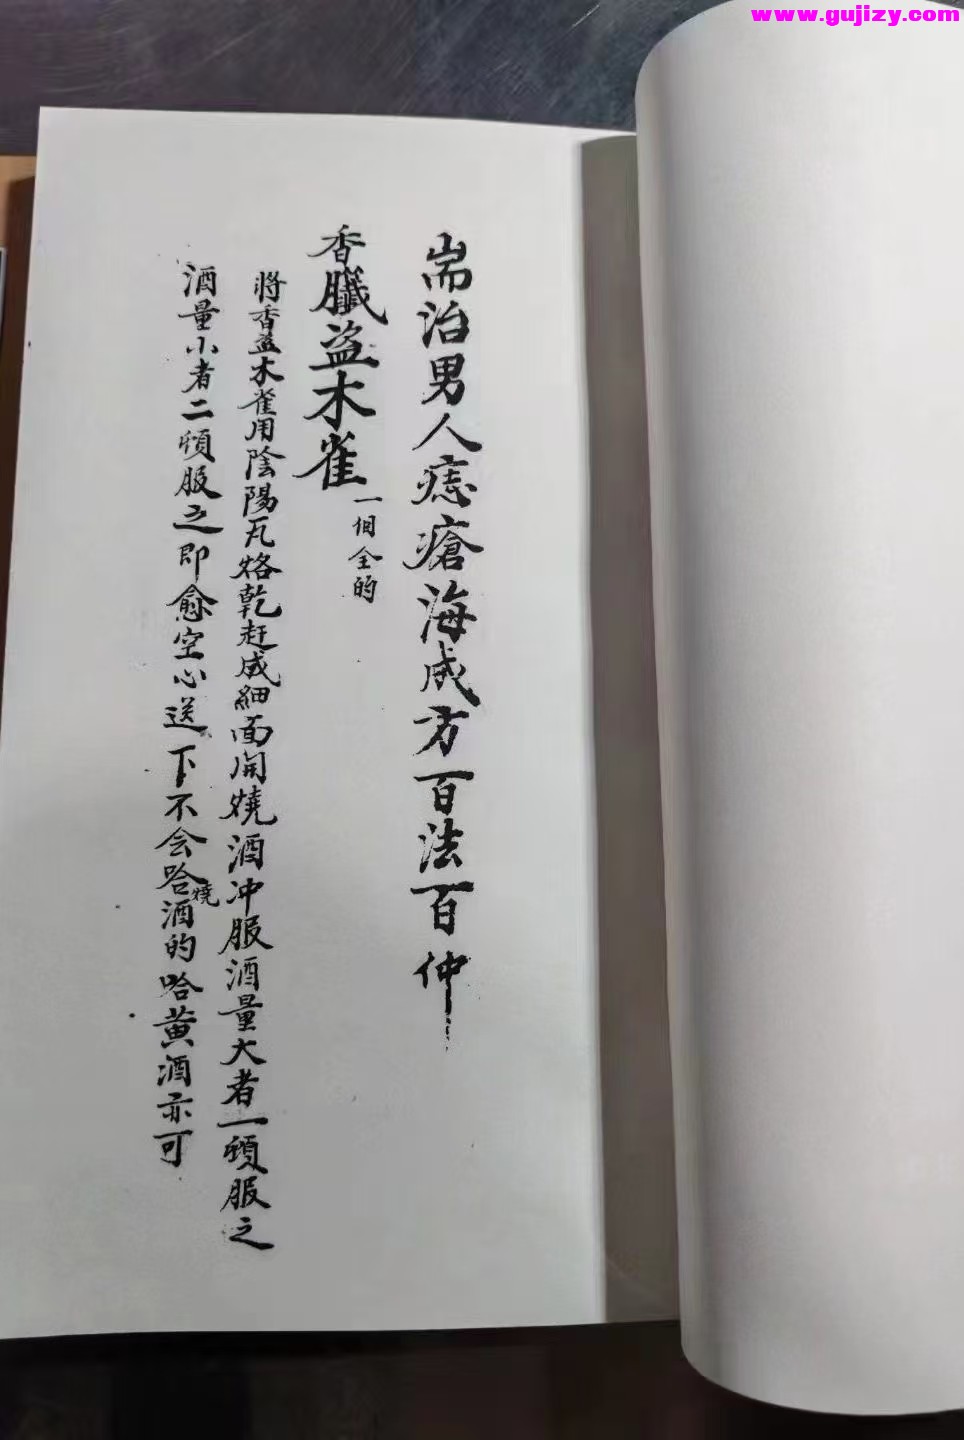 www.gujizy.com
耑治男人痣瘡海成方百法百仲
香臟盗木雀
一個全的
將香盗木雀用陰陽瓦烙乾赶成細面開燒酒冲服酒量大者一頓服之
酒量小者二頓服之即愈空心送下不会哈燒酒的哈黄酒亦可